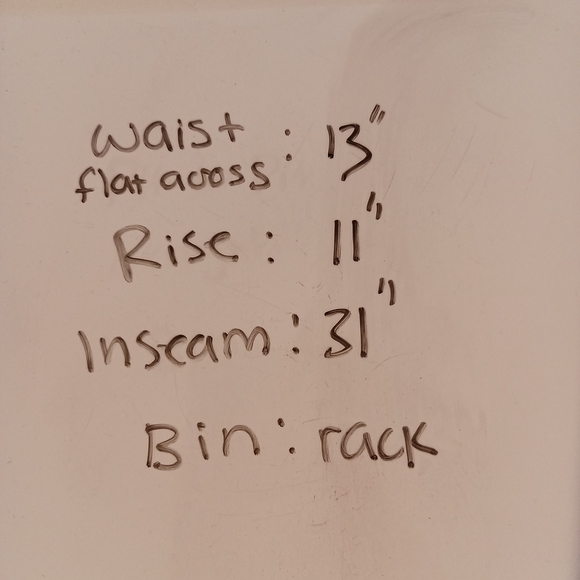 Waist : 13"
flat across
Rise : 11"
Inseam : 31"
Bin : rack